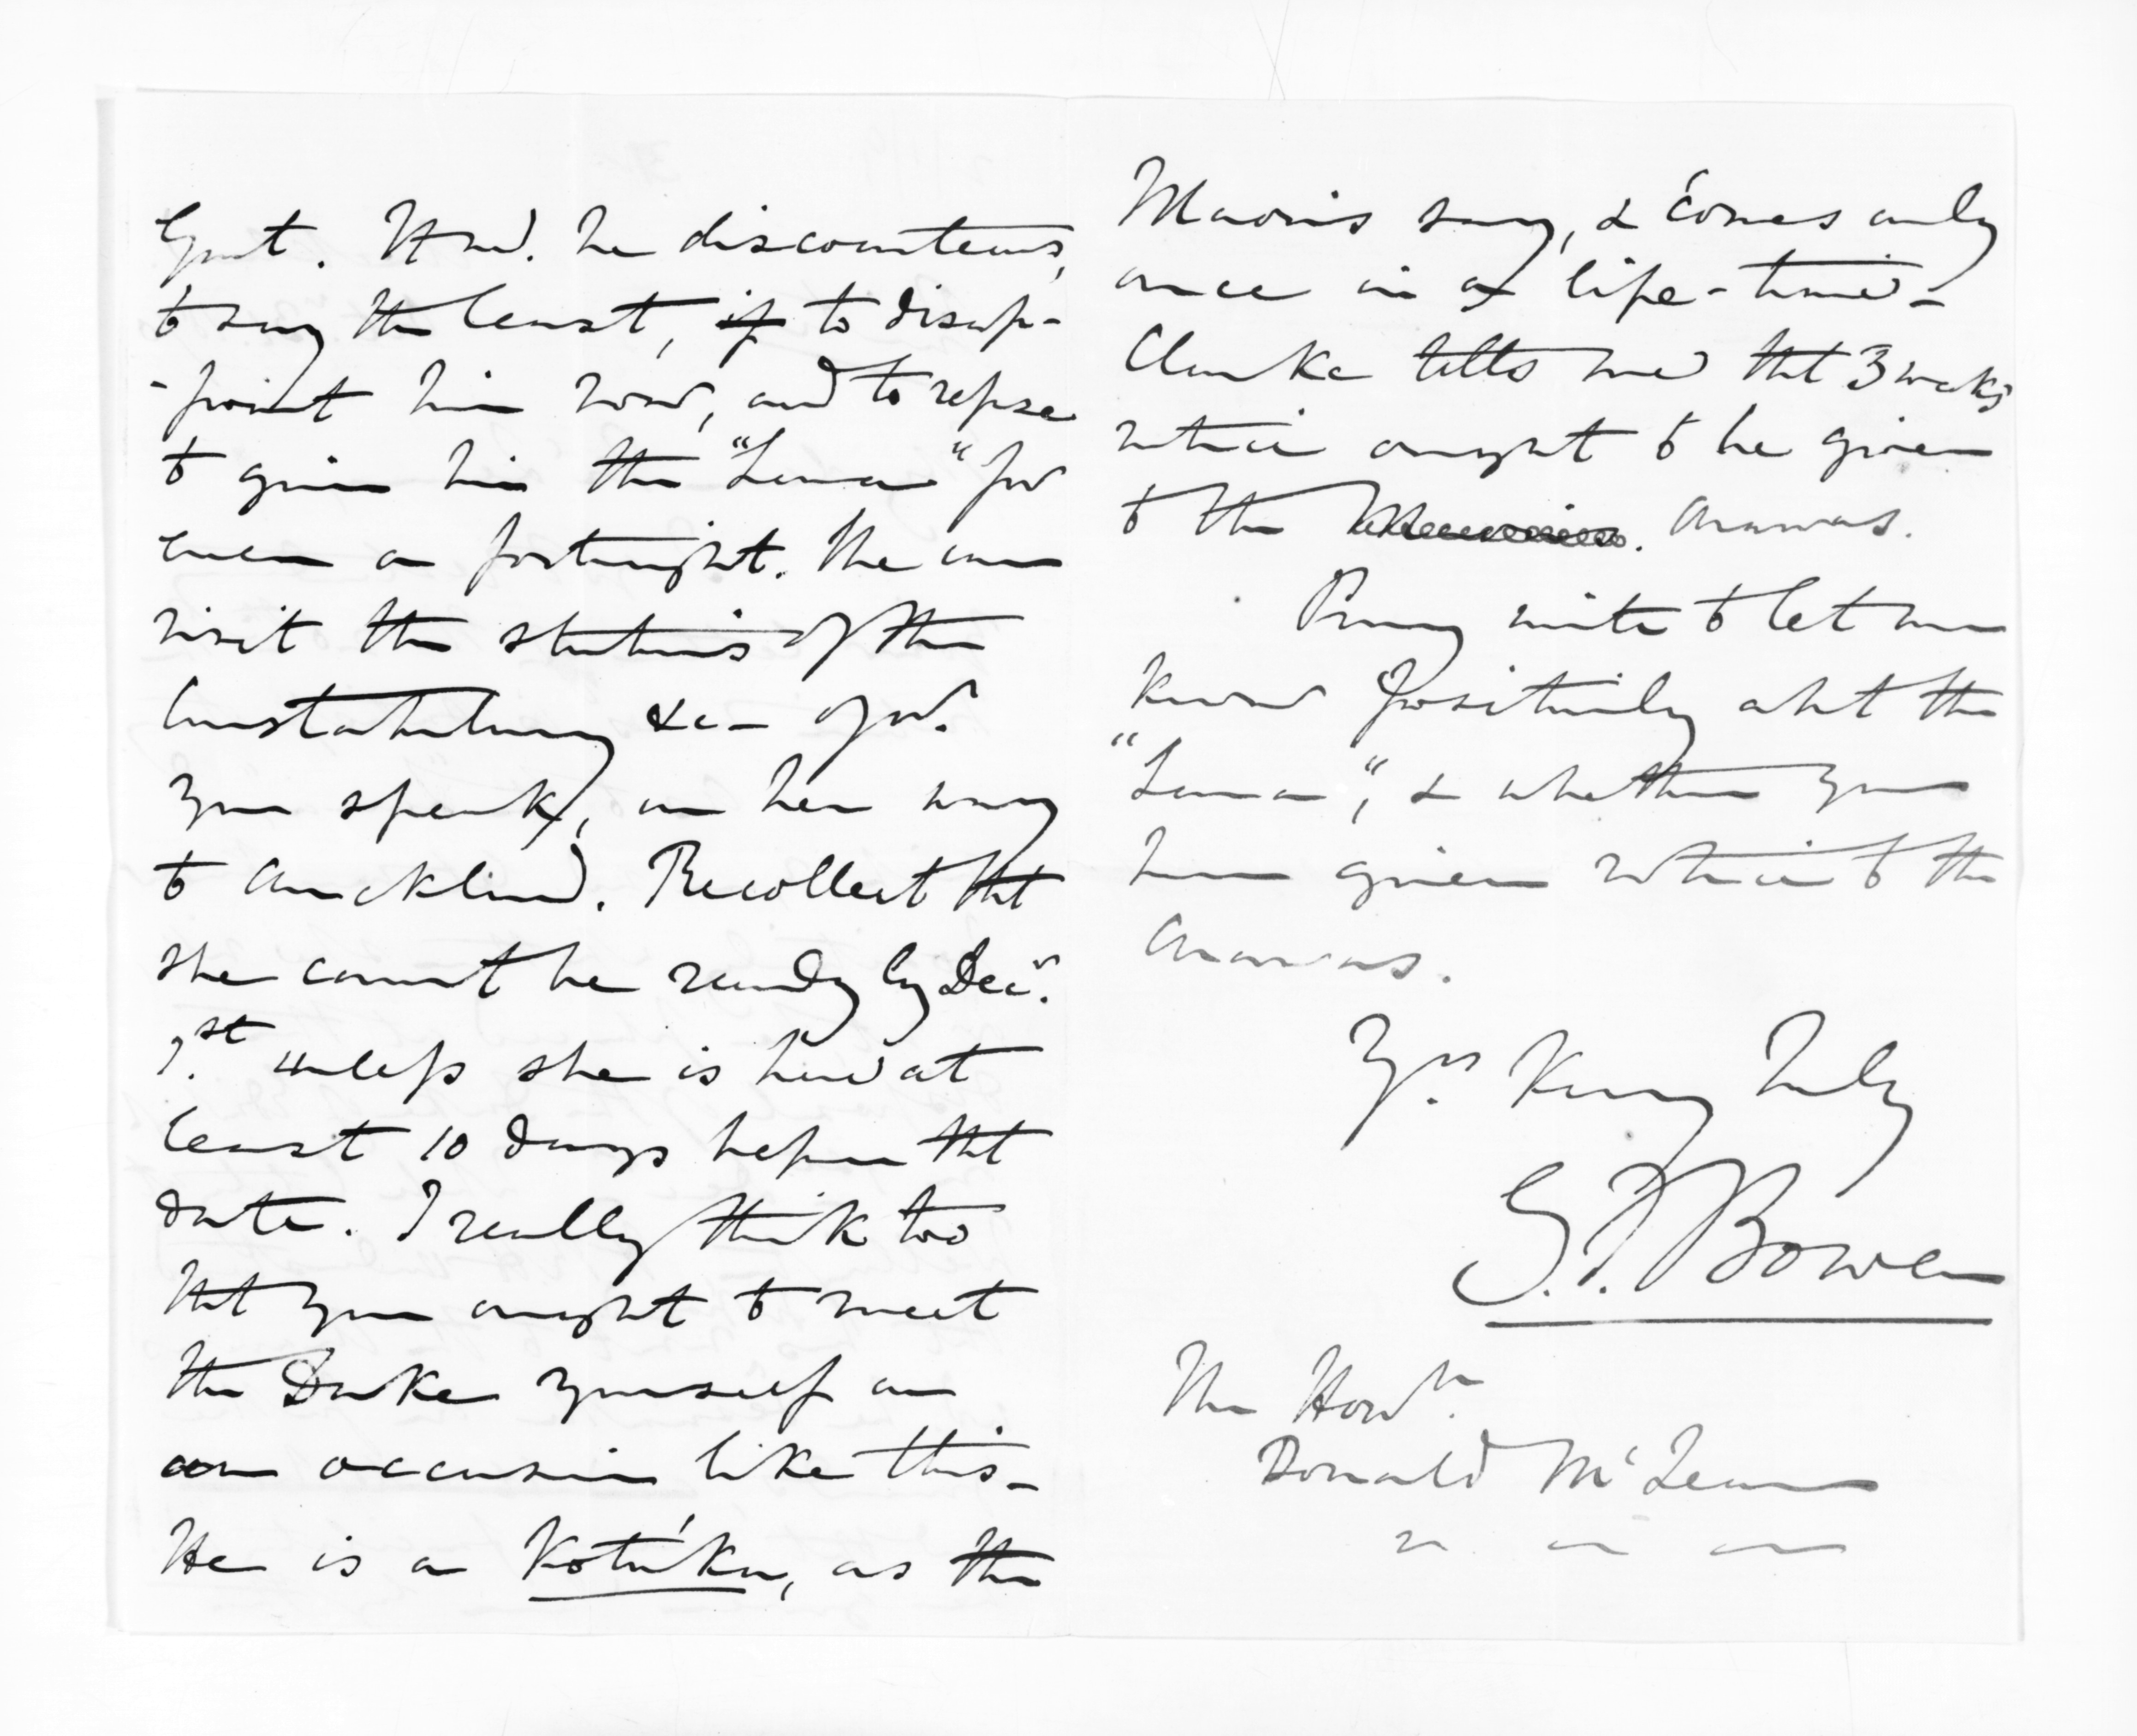 Govt. It wd. be discourteous,
to say the least, if to disap-
-point him now, and to refuse
to give him the "Luna" for
even a fortnight. She can
visit the stations of the
Constabulary &c - of wh.
you speak, on her way
to Auckland. Recollect tht
she cannot be ready by Decr.
1.st unless she is here at
least 10 days before tht
date. I really think too
tht you ought to meet
the Duke yourself on
an occasion like this -
He is a Kotúku, as the
Maoris say, & comes only
once in a life-time -
Clarke tells me tht 3 weeks
notice ought to be given
to the Maories. Arawas.
Pray write to let me
know positively abt the
"Luna", & whether you
have given notice to the
Arawas.
Yrs. very truly
G. F. Bowen
The Honble.
Donald McLean